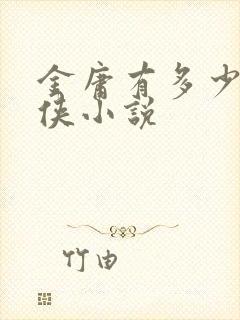 金庸有多少
侠小説
竹由